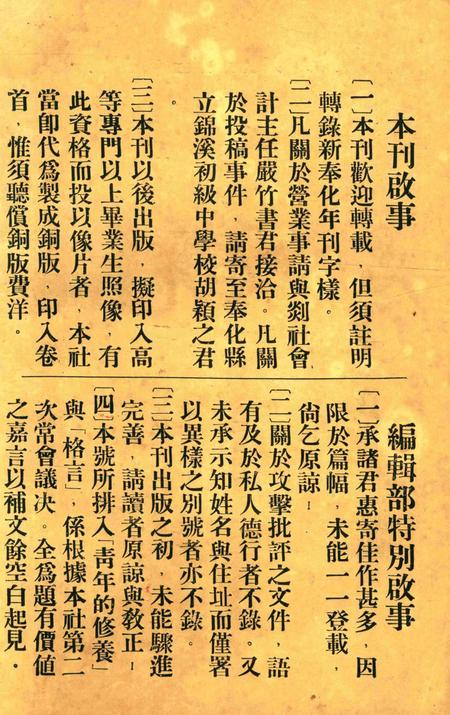 本刊啟事
〔一〕本刊歡迎轉載﹐但須註明
轉錄新奉化年刊字樣。
〔二〕凡關於營業事請與剡社會
計主任嚴竹書君接洽。凡關
於投稿事件﹐請寄至奉化縣
立錦溪初級中學校胡穎之君
。
〔三〕本刊以後出版﹐擬印入高
等專門以上畢業生照像﹐有
此資格而投以像片者﹐本社
當卽代爲製成銅版﹐印入卷
首﹐惟須聽償銅版費洋。
編輯部特別啟事
〔一〕承諸君惠寄佳作甚多﹐因
限於篇幅﹐未能一一登載﹐
尙乞原諒！
〔二〕關於攻擊批評之文件﹐語
有及於私人德行者不錄。又
未承示知姓名與住址而僅署
以異樣之別號者亦不錄。
〔三〕本刊出版之初﹐未能驟進
完善﹐請讀者原諒與教正！
〔四〕本號所排入「靑年的修養」
與「格言」﹐係根據本社第二
次常會議決。全爲題有價値
之嘉言以補文餘空白起見。